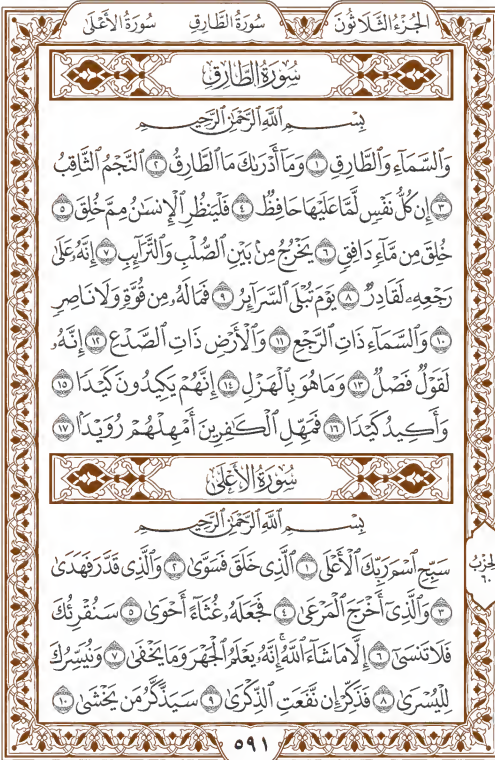 الجُزْءُ الثَّلَاثُونَ سُورَةُ الطَّارِقِ سُورَةُ الأَعْلَى
سُورَةُ الطَّارِقِ
بِسْمِ ٱللَّهِ ٱلرَّحْمَٰنِ ٱلرَّحِيمِ
وَٱلسَّمَآءِ وَٱلطَّارِقِ ١ وَمَآ أَدْرَىٰكَ مَا ٱلطَّارِقُ ٢ ٱلنَّجْمُ ٱلثَّاقِبُ
٣ إِن كُلُّ نَفْسٍ لَّمَّا عَلَيْهَا حَافِظٌ ٤ فَلْيَنظُرِ ٱلْإِنسَٰنُ مِمَّ خُلِقَ ٥
خُلِقَ مِن مَّآءٍ دَافِقٍ ٦ يَخْرُجُ مِنۢ بَيْنِ ٱلصُّلْبِ وَٱلتَّرَآئِبِ ٧ إِنَّهُۥ عَلَىٰ
رَجْعِهِۦ لَقَادِرٌ ٨ يَوْمَ تُبْلَى ٱلسَّرَآئِرُ ٩ فَمَا لَهُۥ مِن قُوَّةٍ وَلَا نَاصِرٍ
١٠ وَٱلسَّمَآءِ ذَاتِ ٱلرَّجْعِ ١١ وَٱلْأَرْضِ ذَاتِ ٱلصَّدْعِ ١٢ إِنَّهُۥ
لَقَوْلٌ فَصْلٌ ١٣ وَمَا هُوَ بِٱلْهَزْلِ ١٤ إِنَّهُمْ يَكِيدُونَ كَيْدًا ١٥
وَأَكِيدُ كَيْدًا ١٦ فَمَهِّلِ ٱلْكَٰفِرِينَ أَمْهِلْهُمْ رُوَيْدًۢا ١٧
سُورَةُ الأَعْلَى
بِسْمِ ٱللَّهِ ٱلرَّحْمَٰنِ ٱلرَّحِيمِ
سَبِّحِ ٱسْمَ رَبِّكَ ٱلْأَعْلَى ١ ٱلَّذِى خَلَقَ فَسَوَّىٰ ٢ وَٱلَّذِى قَدَّرَ فَهَدَىٰ
٣ وَٱلَّذِىٓ أَخْرَجَ ٱلْمَرْعَىٰ ٤ فَجَعَلَهُۥ غُثَآءً أَحْوَىٰ ٥ سَنُقْرِئُكَ
فَلَا تَنسَىٰٓ ٦ إِلَّا مَا شَآءَ ٱللَّهُ ۚ إِنَّهُۥ يَعْلَمُ ٱلْجَهْرَ وَمَا يَخْفَىٰ ٧ وَنُيَسِّرُكَ
لِلْيُسْرَىٰ ٨ فَذَكِّرْ إِن نَّفَعَتِ ٱلذِّكْرَىٰ ٩ سَيَذَّكَّرُ مَن يَخْشَىٰ ١٠
الحِزْبُ
٦٠
٥٩١